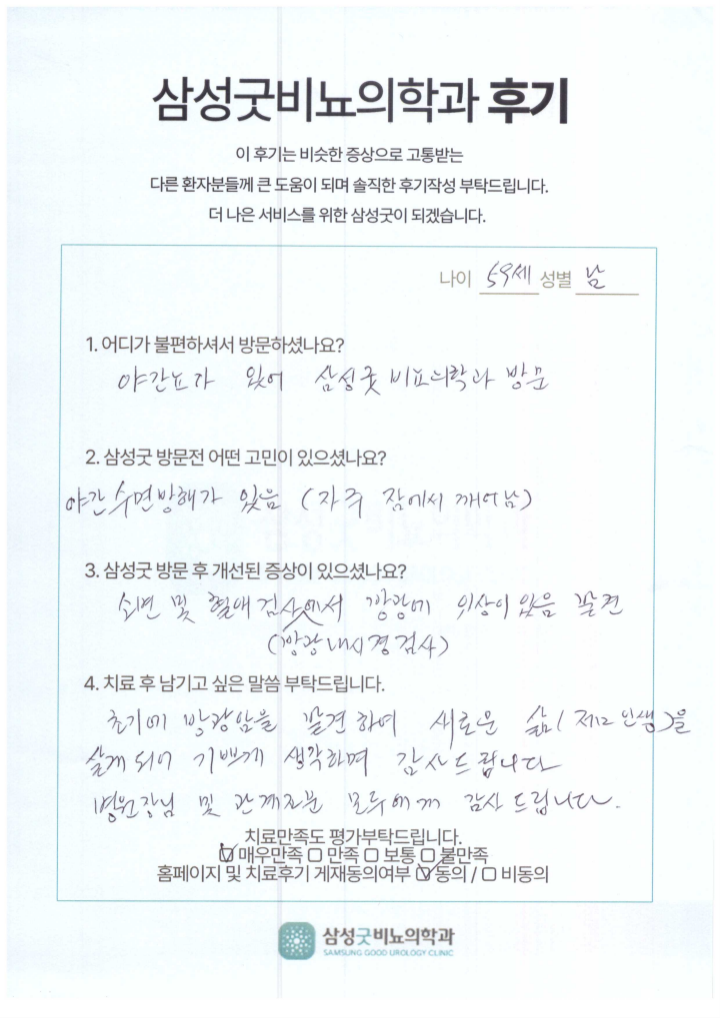 삼성굿비뇨의학과 후기
이 후기는 비슷한 증상으로 고통받는
다른 환자분들께 큰 도움이 되며 솔직한 후기작성 부탁드립니다.
더 나은 서비스를 위한 삼성굿이 되겠습니다.
나이 59세 성별 남
1. 어디가 불편하셔서 방문하셨나요?
야간뇨가 있어 삼성굿 비뇨의학과 방문
2. 삼성굿 방문전 어떤 고민이 있으셨나요?
야간 수면방해가 있음 (자주 잠에서 깨어남)
3. 삼성굿 방문 후 개선된 증상이 있으셨나요?
소변 및 혈액검사에서 방광에 이상이 있음 발견
(방광내시경검사)
4. 치료 후 남기고 싶은 말씀 부탁드립니다.
초기에 방광암을 발견하여 새로운 삶(제2인생)을
살게 되어 기쁘게 생각하며 감사드립니다
병원장님 및 관계자분 모두에게 감사드립니다.
치료만족도 평가부탁드립니다.
☑ 매우만족 ☐ 만족 ☐ 보통 ☐ 불만족
홈페이지 및 치료후기 게재동의여부 ☑ 동의 / ☐ 비동의
삼성굿비뇨의학과
SAMSUNG GOOD UROLOGY CLINIC